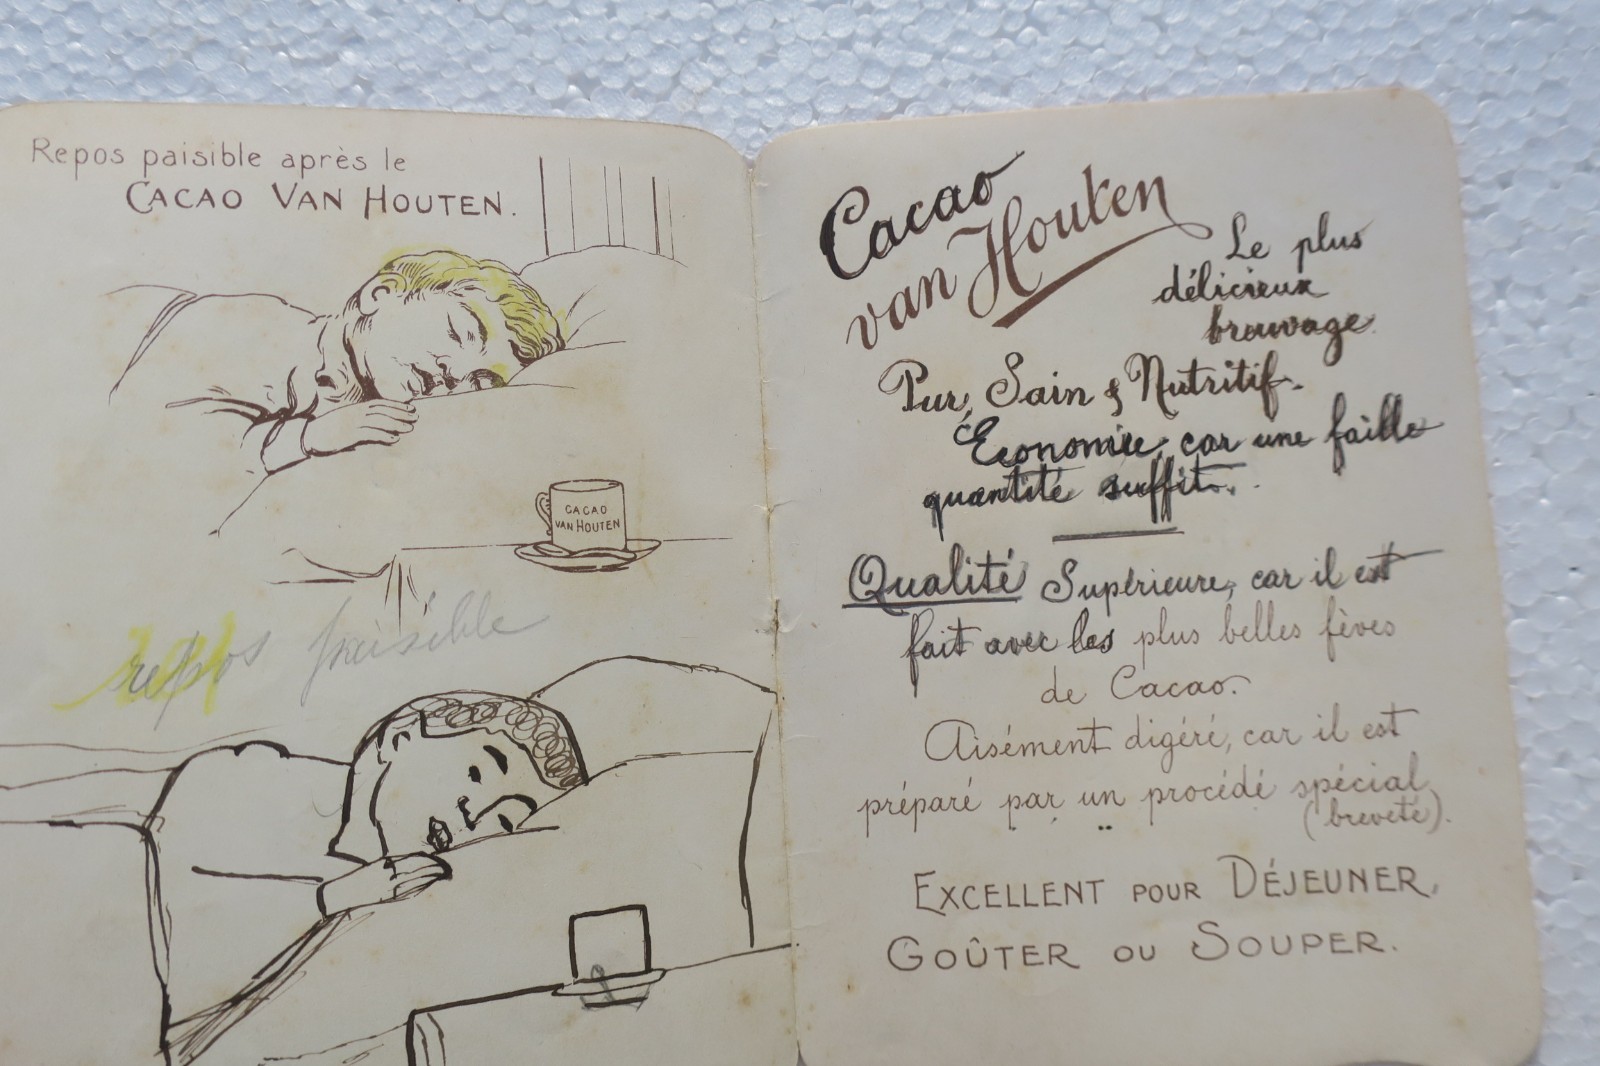 Repos paisible après le
CACAO VAN HOUTEN.
CACAO
VAN HOUTEN
repos paisible
Cacao
van Houten
Le plus
délicieux
breuvage.
Pur, Sain & Nutritif.
Economie, car une faible
quantité suffit.
Qualité Supérieure, car il est
fait avec les plus belles fèves
de Cacao.
Aisément digéré, car il est
préparé par un procédé spécial
(breveté).
EXCELLENT POUR DÉJEUNER,
GOÛTER OU SOUPER.